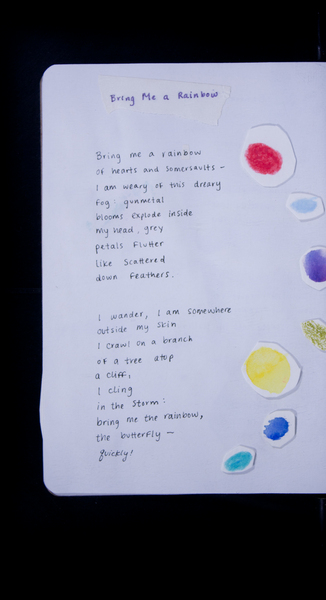 Bring Me a Rainbow
Bring me a rainbow
of hearts and somersaults –
I am weary of this dreary
fog: gunmetal
blooms explode inside
my head, grey
petals flutter
like scattered
down feathers.
I wander, I am somewhere
outside my skin
I crawl on a branch
of a tree atop
a cliff,
I cling
in the storm:
bring me the rainbow,
the butterfly –
quickly!